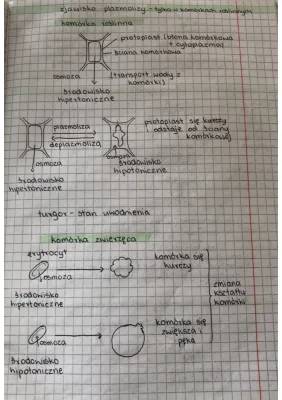 zjawisko plazmolizy - tylko w komórkach roślinnych
komórka roślinna
protoplast (błona komórkowa
+ cytoplazma)
ściana komórkowa
osmoza
(transport wody z
komórki)
środowisko
hipertoniczne
plazmoliza
deplazmoliza
protoplast się kurczy
odstaje od ściany
komórkowej
osmoza
osmoza
środowisko
hipertoniczne
środowisko
hipotoniczne
turgor - stan uwodnienia
komórka zwierzęca
erytrocyt
osmoza
komórka się
kurczy
środowisko
hipertoniczne
zmiana
kształtu
komórki
osmoza
komórka się
zwiększa i
pęka
środowisko
hipotoniczne